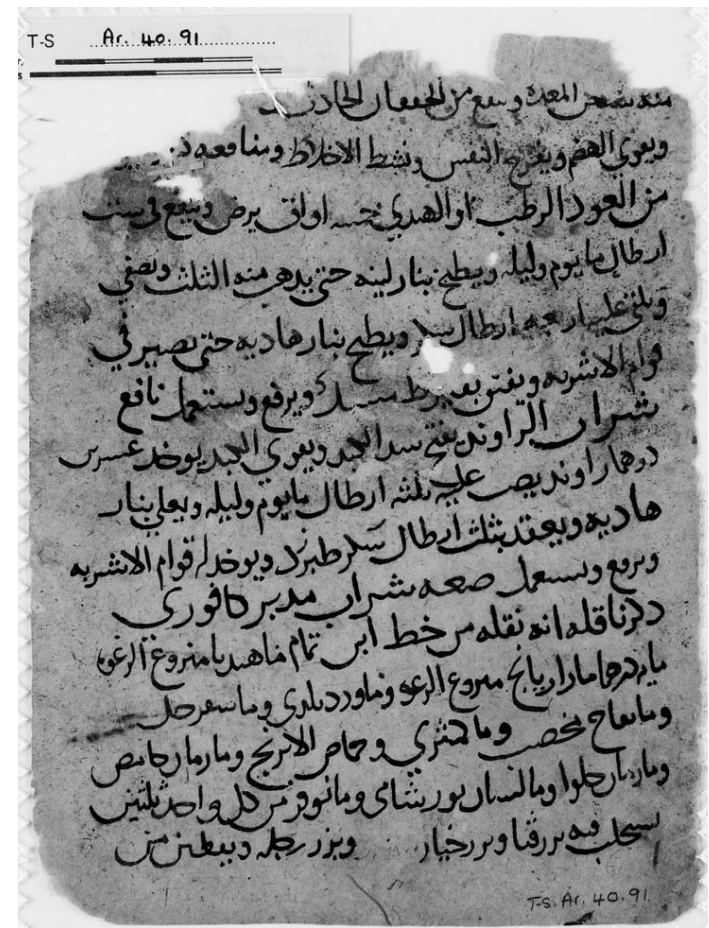 T-S Ar. 40.91
منه تسخن المعدة وينفع من الخفقان الحادث
ويقوي الهضم ويفرح النفس وينشط الاخلاط ومنافعه
من العود الرطب او الهندي خمسه اواق يرض وينقع في ست
ارطال ما يوم وليله ويطبخ بنار لينه حتى يذهب منه الثلث ويصفى
ويلقى عليه اربعه ارطال سكر ويطبخ بنار هاديه حتى يصير في
قوام الاشربه ويفتق مسك ويرفع ويستعمل نافع
شراب الراوند يفتح سدد الكبد ويقوي الكبد يوخد عشرين
درهما راوند يصب عليه ثلثه ارطال ما يوم وليله ويغلى بنار
هاديه ويعقد بثلث ارطال سكر طبرزد ويوخد له قوام الاشربه
ويرفع ويستعمل صفه شراب مدبر كافوري
ذكر ناقله انه نقله من خط ابن تمام ما هندبا منزوع الرغوه
مايه درهما ما رازيانج منزوع الرغوه وما ورد بلدي وما سفرجل
وما تفاح وما كمثري وحماض الاترنج وما رمان حامض
وما رمان حلوا وما لسان ثور شامي وما نوفر من كل واحد ثلثين
يستحلب فيه بزر قثا وبزر خيار وبزر رجله ويقطين من
T-S. Ar. 40.91.